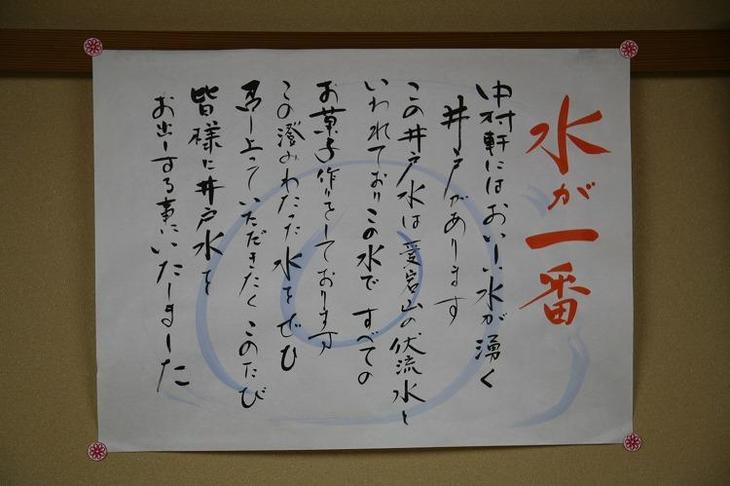 水が一番
中村軒にはおいしい水が湧く
井戸があります
この井戸水は愛宕山の伏流水と
いわれておりこの水ですべての
お菓子作りをしております
この澄みわたった水をぜひ
召し上っていただきたくこのたび
皆様に井戸水を
お出しする事にいたしました